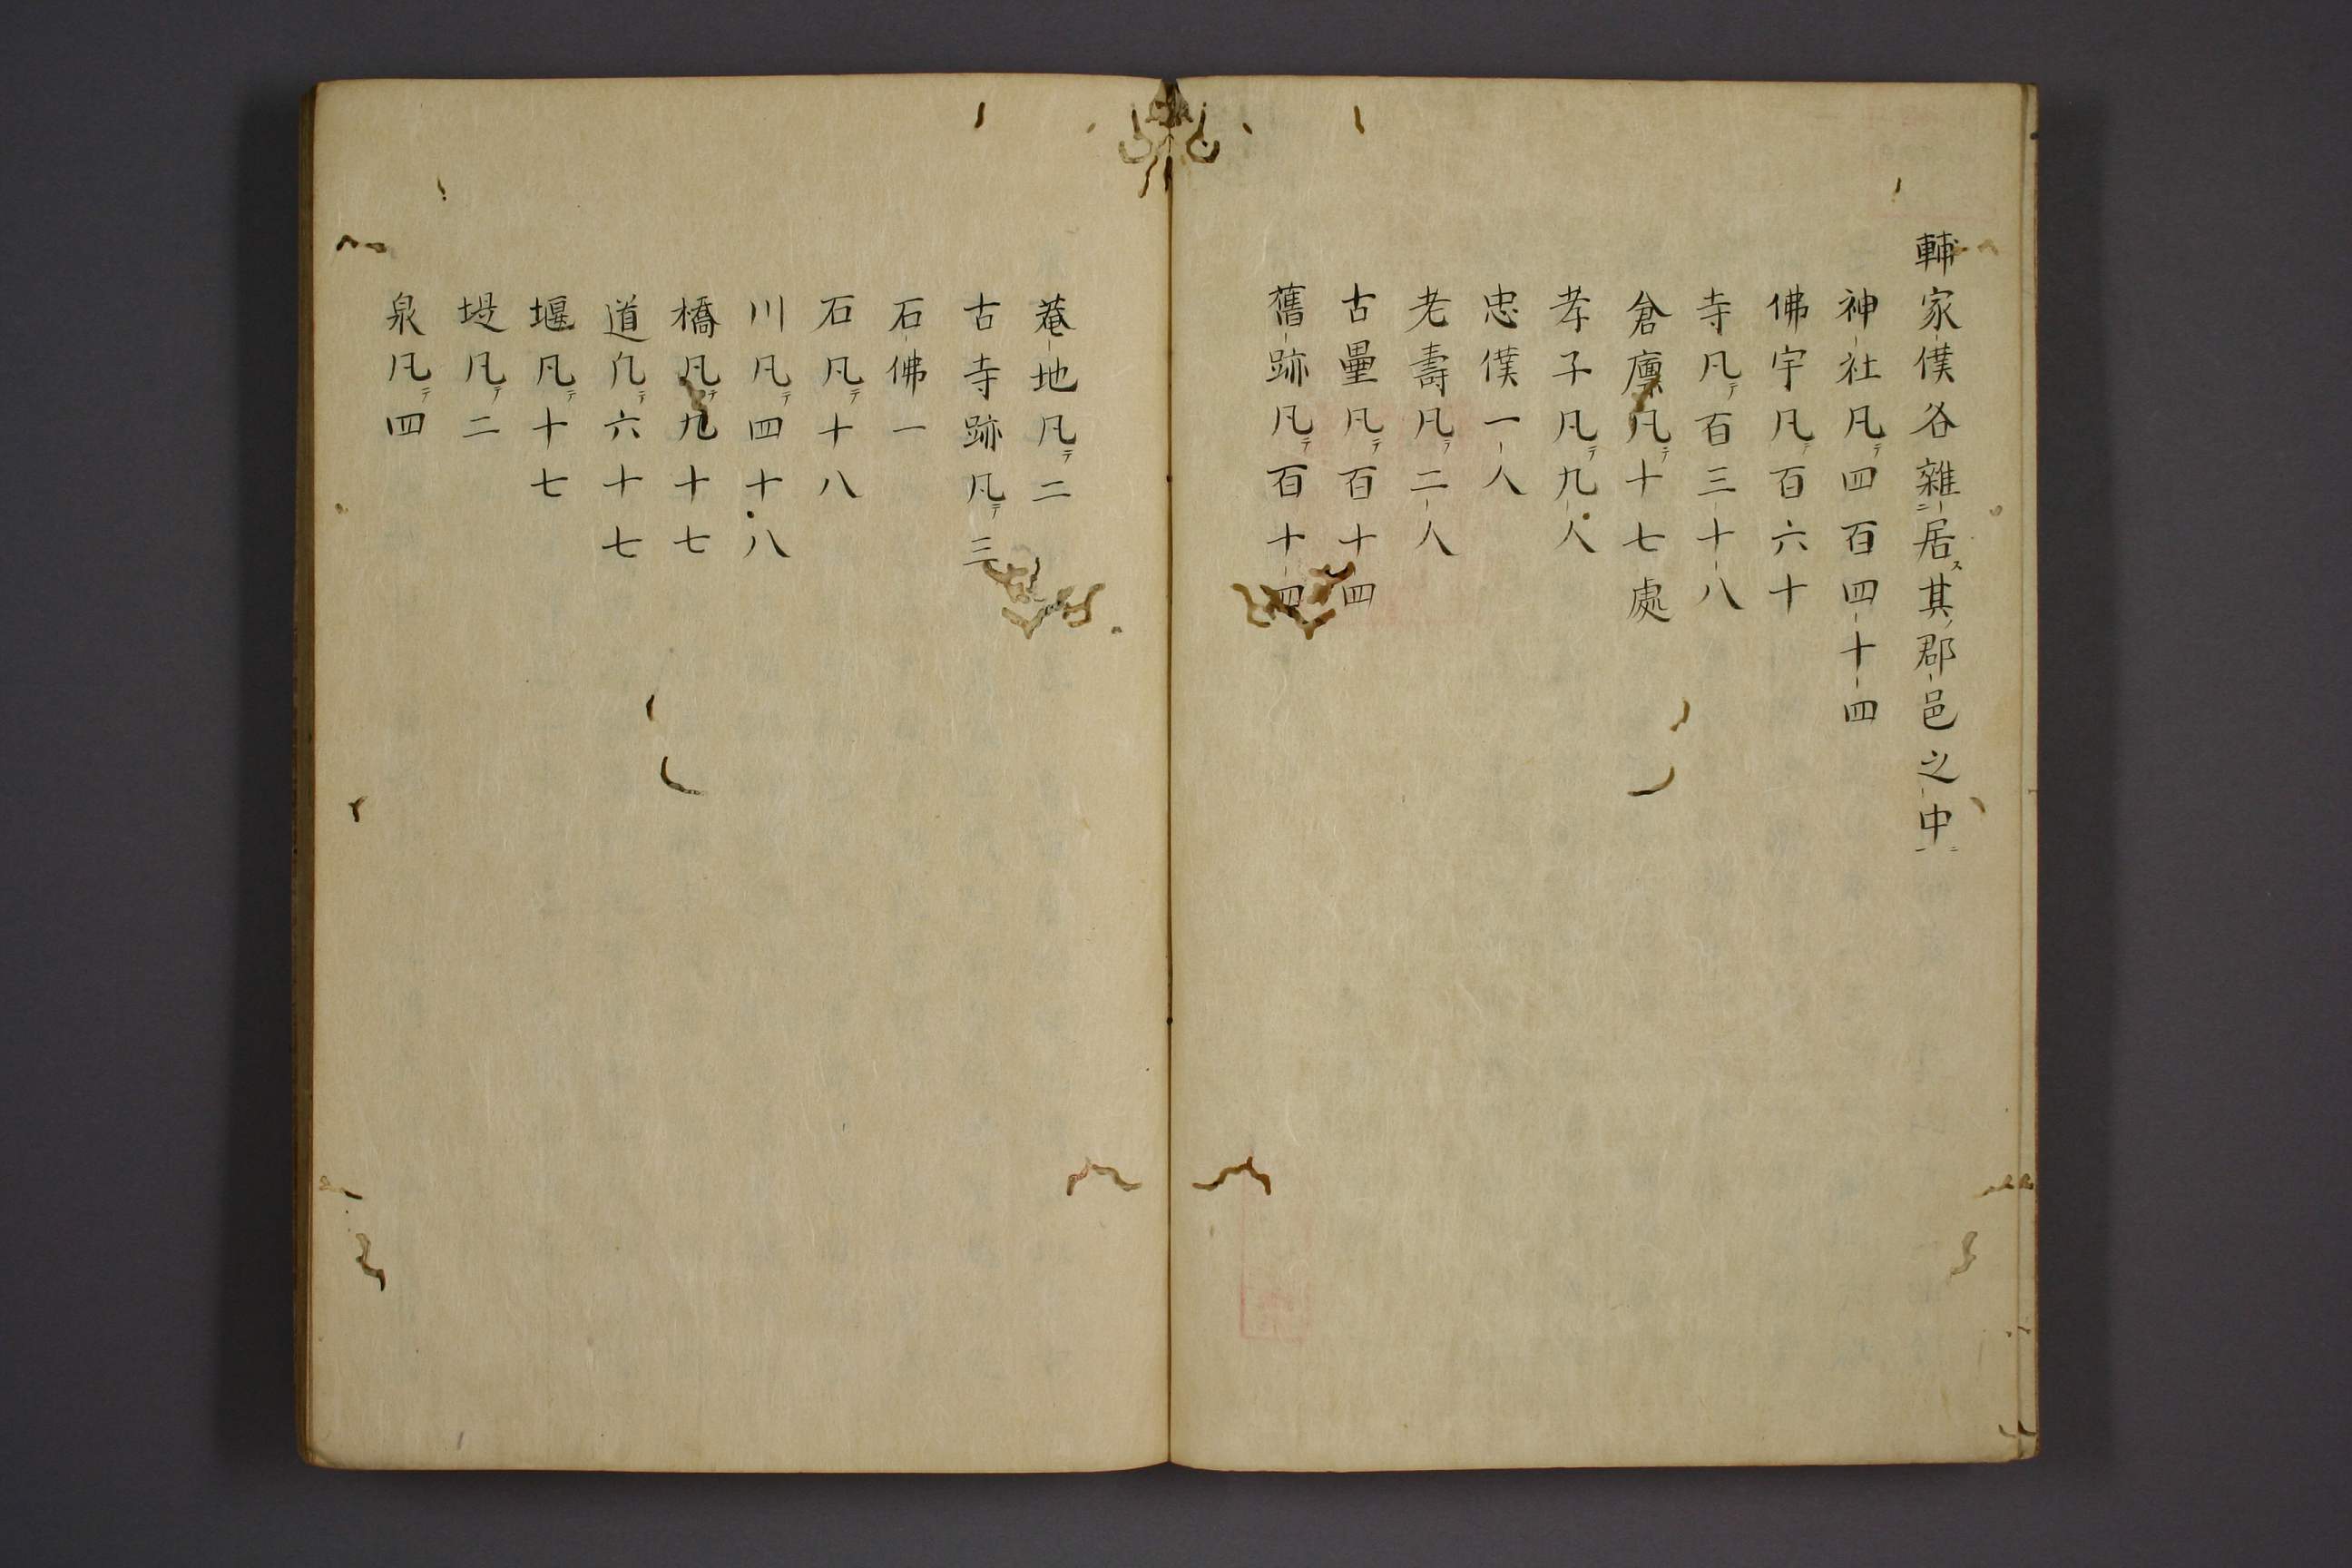 輔家僕各雜居其郡邑之中
神社凡テ四百四十四
佛宇凡テ百六十
寺凡テ百三十八
倉廩凡テ十七處
孝子凡テ九人
忠僕一人
老壽凡テ二人
古壘凡テ百十四
舊跡凡テ百十四
菴地凡テ二
古寺跡凡テ三
石佛一
石凡テ十八
川凡テ四十八
橋凡テ九十七
道凡テ六十七
堰凡テ十七
堤凡テ二
泉凡テ四